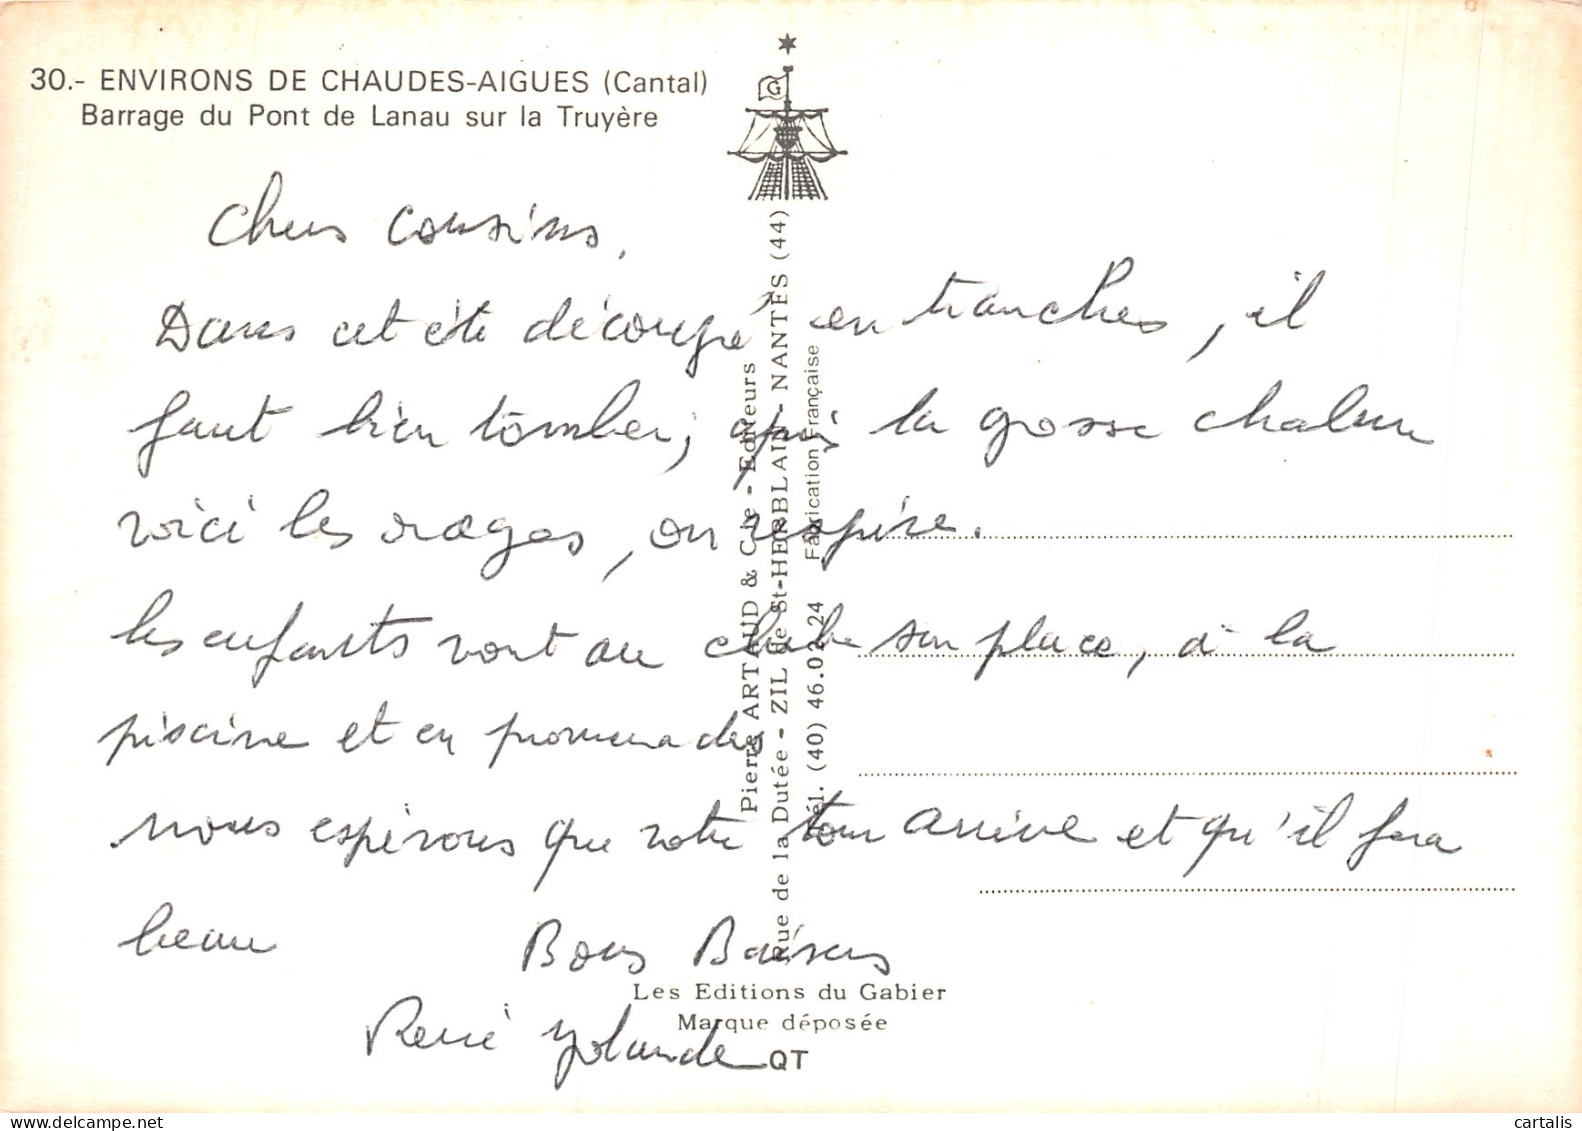 30.- ENVIRONS DE CHAUDES-AIGUES (Cantal)
Barrage du Pont de Lanau sur la Truyère
G
Chers cousins,
Dans cet été découpé en tranches, il
faut bien tomber; après la grosse chaleur
voici les orages, on respire.
les enfants vont au club sur place, à la
piscine et en promenades
nous espérons que votre tour arrive et qu'il fera
beau
Bons Baisers
René Yolande
Pierre ARTAUD & Cie - Editeurs
Rue de la Dutée - ZIL de St-HERBLAIN - NANTES (44)
Tél. (40) 46.02.24 Fabrication Française
Les Editions du Gabier
Marque déposée
QT
cartalis